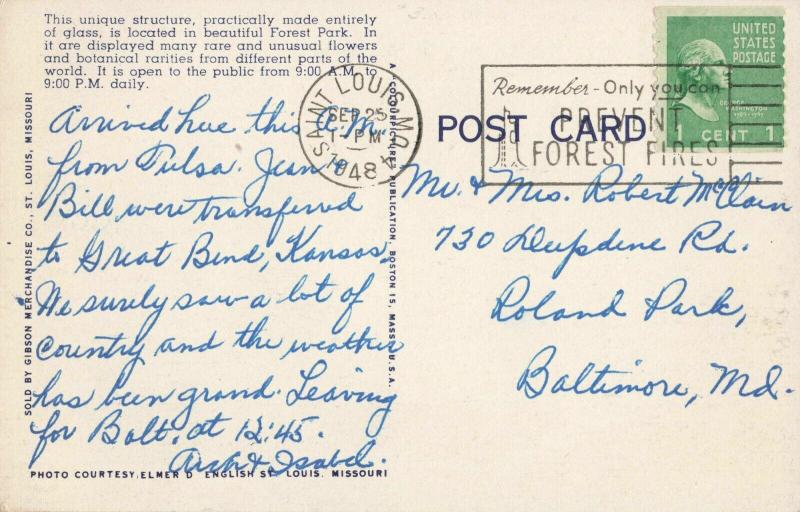 This unique structure, practically made entirely
of glass, is located in beautiful Forest Park. In
it are displayed many rare and unusual flowers
and botanical rarities from different parts of the
world. It is open to the public from 9:00 A.M. to
9:00 P.M. daily.
Arrived here this A.M.
from Tulsa. Jean &
Bill were transferred
to Great Bend, Kansas.
We surely saw a lot of
country and the weather
has been grand. Leaving
for Balt. at 12:45.
Arch & Isabel.
PHOTO COURTESY, ELMER D ENGLISH ST LOUIS, MISSOURI
SOLD BY GIBSON MERCHANDISE CO., ST. LOUIS, MISSOURI
A "COLOURPICTURE" PUBLICATION, BOSTON 15, MASS., U.S.A.
SAINT LOUIS, MO.
SEP 25
1 PM
1948
POST CARD
Remember - Only you can
PREVENT
FOREST FIRES
UNITED
STATES
POSTAGE
GEORGE
WASHINGTON
1 CENT 1
Mr. & Mrs. Robert McClain
730 Deepdene Rd.
Roland Park,
Baltimore, Md.